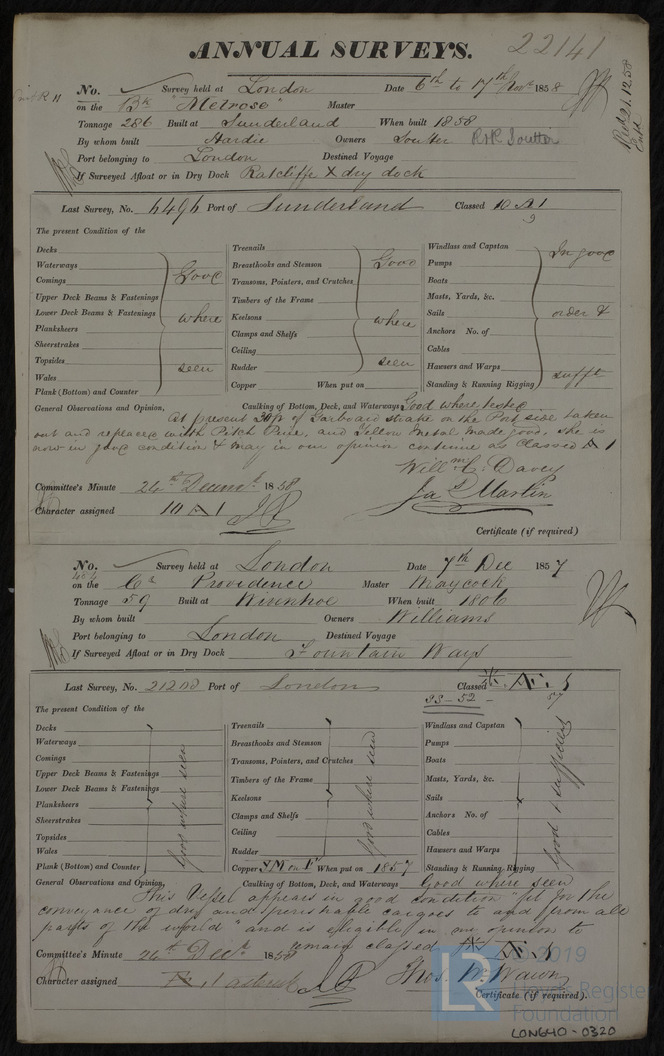 22141
ANNUAL SURVEYS.
No. Survey held at London Date 6th to 17th Novr 1858
on the Bk "Melrose" Master
Tonnage 286 Built at Sunderland When built 1858
By whom built Hardie Owners Soutter
Port belonging to London Destined Voyage
If Surveyed Afloat or in Dry Dock Ratcliffe X dry dock
Last Survey, No. 6496 Port of Sunderland Classed 10 A 1
The present Condition of the
Decks
Waterways
Comings
Upper Deck Beams & Fastenings
Lower Deck Beams & Fastenings
Planksheers
Sheerstrakes
Topsides
Wales
Plank (Bottom) and Counter
Good where seen
Treenails
Breasthooks and Stemson
Transoms, Pointers, and Crutches
Timbers of the Frame
Keelsons
Clamps and Shelfs
Ceiling
Rudder
Copper When put on
Good where seen
Windlass and Capstan
Pumps
Boats
Masts, Yards, &c.
Sails
Anchors No. of
Cables
Hawsers and Warps
Standing & Running Rigging
In good order & sufft
General Observations and Opinion, Caulking of Bottom, Deck, and Waterways Good where tested
At present of Garboard strake on the Port side taken
out and replaced with Pitch Pine, and Yellow Metal made good, she is
now in good condition & may in our opinion continue as Classed A 1
Willm C. Davey
Jas Martin
Committee's Minute 24th Decemr. 1858
Character assigned 10 A 1
Certificate (if required)
No. Survey held at London Date 7th Dec 1857
on the Cr Providence Master Maycock
Tonnage 59 Built at Wivnhoe When built 1806
By whom built Owners Williams
Port belonging to London Destined Voyage
If Surveyed Afloat or in Dry Dock Fountain Ways
Last Survey, No. 21200 Port of London Classed
33-52 - 57
The present Condition of the
Decks
Waterways
Comings
Upper Deck Beams & Fastenings
Lower Deck Beams & Fastenings
Planksheers
Sheerstrakes
Topsides
Wales
Plank (Bottom) and Counter
Good where seen
Treenails
Breasthooks and Stemson
Transoms, Pointers, and Crutches
Timbers of the Frame
Keelsons
Clamps and Shelfs
Ceiling
Rudder
Copper When put on 1857
Good where seen
Windlass and Capstan
Pumps
Boats
Masts, Yards, &c.
Sails
Anchors No. of
Cables
Hawsers and Warps
Standing & Running Rigging
Good & sufficient
General Observations and Opinion, Caulking of Bottom, Deck, and Waterways Good where seen
This Vessel appears in good condition "fit for the
conveyance of dry and perishable cargoes to and from all
parts of the world" and is eligible in our opinion to
remain classed
Committee's Minute 24th Decr. 1858
Character assigned
Thos. W. Wawn
Certificate (if required).
© 2019
LR
Lloyd's Register
Foundation
LON640-0320